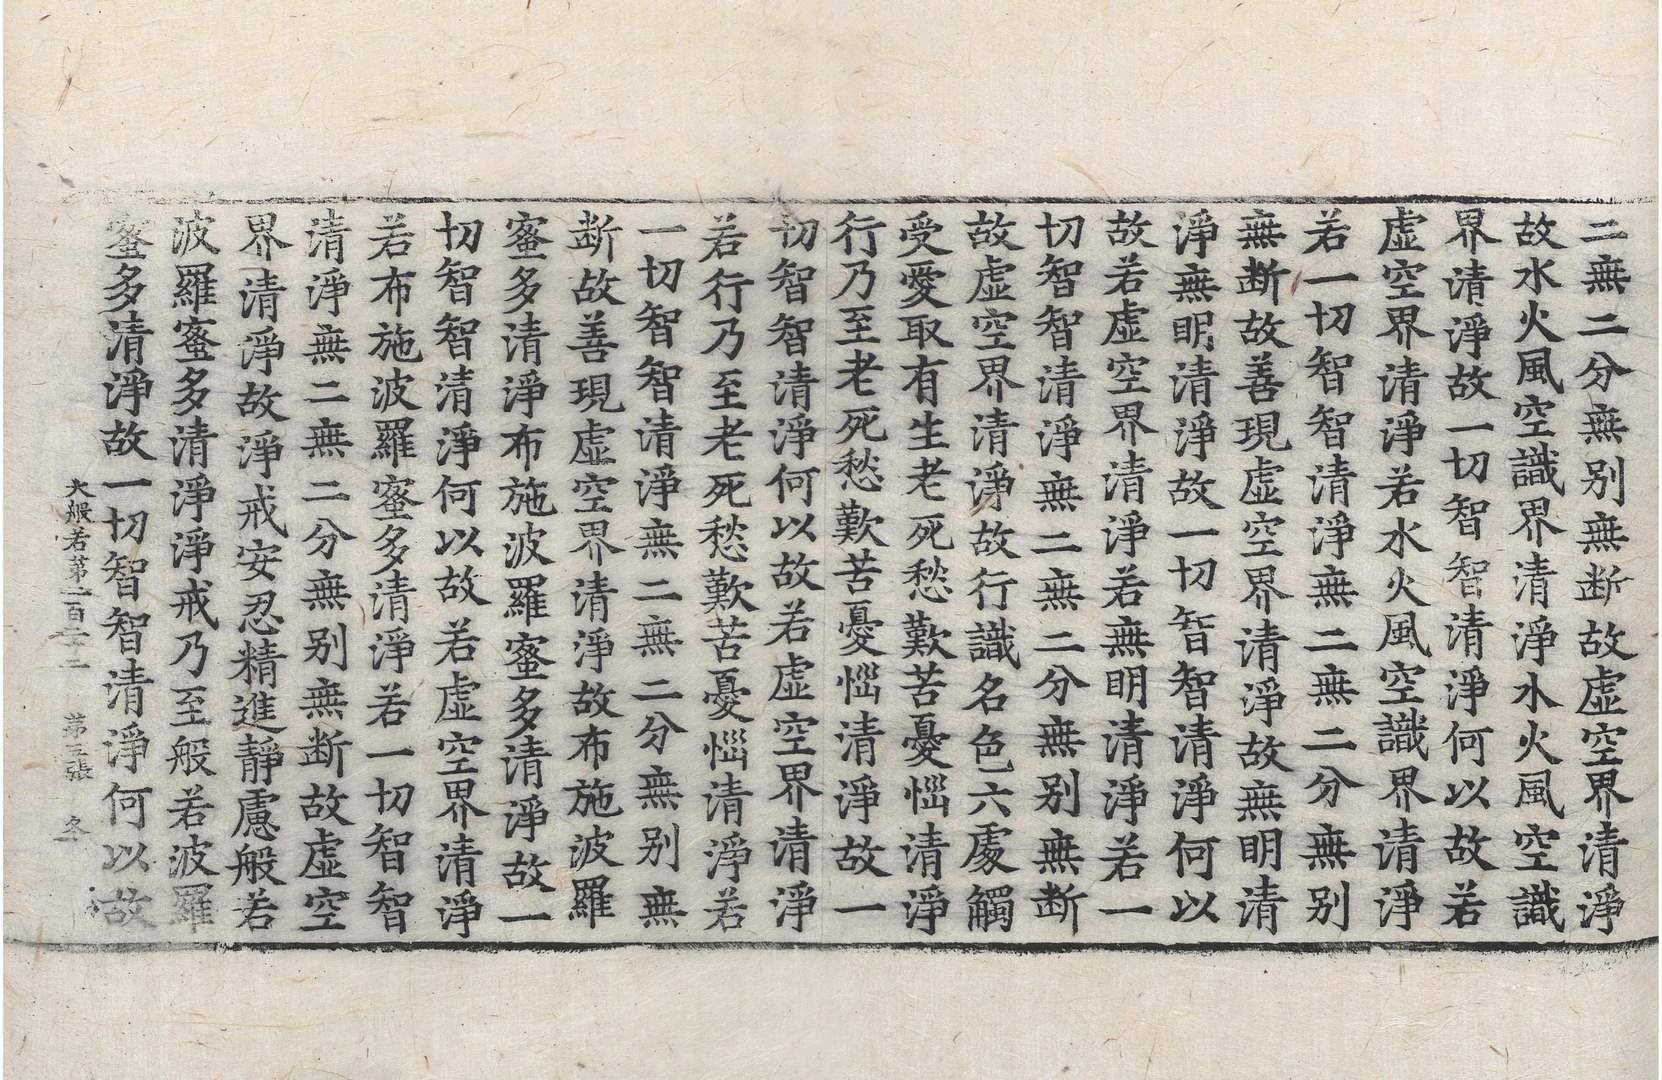 二無二分無别無断故虚空界清淨
故水火風空識界清淨水火風空識
界清淨故一切智智清淨何以故若
虚空界清淨若水火風空識界清淨
若一切智智清淨無二無二分無别
無断故善現虚空界清淨故無明清
淨無明清淨故一切智智清淨何以
故若虚空界清淨若無明清淨若一
切智智清淨無二無二分無别無断
故虚空界清淨故行識名色六處觸
受愛取有生老死愁歎苦憂惱清淨
行乃至老死愁歎苦憂惱清淨故一
切智智清淨何以故若虚空界清淨
若行乃至老死愁歎苦憂惱清淨若
一切智智清淨無二無二分無别無
断故善現虚空界清淨故布施波羅
蜜多清淨布施波羅蜜多清淨故一
切智智清淨何以故若虚空界清淨
若布施波羅蜜多清淨若一切智智
清淨無二無二分無别無断故虚空
界清淨故淨戒安忍精進靜慮般若
波羅蜜多清淨淨戒乃至般若波羅
蜜多清淨故一切智智清淨何以故
大般若第二百二十二 第張 冬